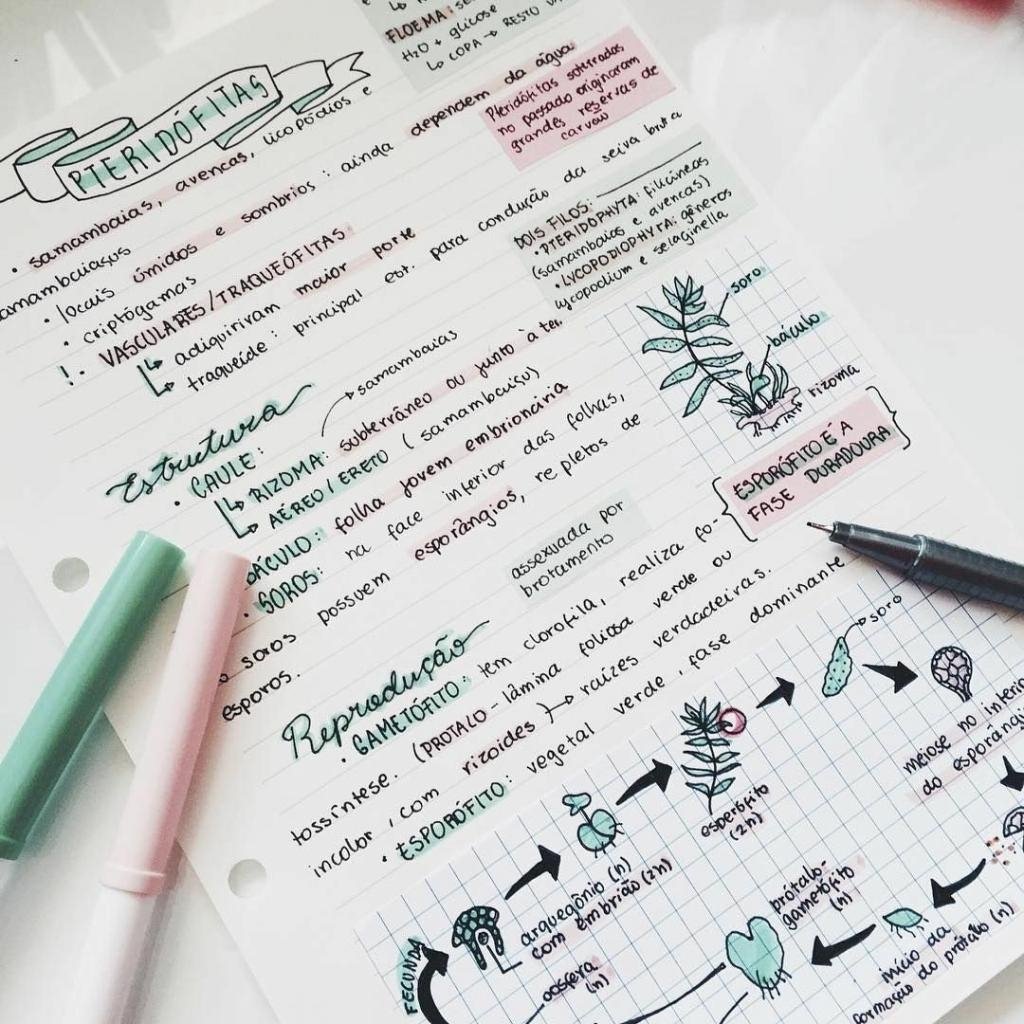 FLOEMA: se
H₂O + glicose
↳ COPA → RESTO
PTERIDÓFITAS
Pteridófitas soterradas
no passado originaram
grandes reservas de
carvão
• samambaias, avencas, licopódios e
samambaiaçus
• locais úmidos e sombrios: ainda dependem da água
• criptógamas
!• VASCULARES/TRAQUEÓFITAS
↳ adiquiriram maior porte
↳ traqueíde: principal est. para condução da seiva bruta
DOIS FILOS:
• PTERIDOPHYTA: filicíneas
(samambaias e avencas)
• LYCOPODIOPHYTA: gêneros
lycopodium e selaginella
soro
báculo
rizoma
Estrutura
• CAULE:
→ samambaias
↳ RIZOMA: subterrâneo ou junto à ter
↳ AÉREO/ERETO (samambaiçu)
BÁCULO: folha jovem embrionária
• SOROS: na face inferior das folhas,
soros possuem esporângios, repletos de
esporos.
ESPORÓFITO É A
FASE DURADOURA
assexuada por
brotamento
Reprodução
• GAMETÓFITO: tem clorofila, realiza fo-
tossíntese. (PROTALO - lâmina foliosa verde ou
incolor, com rizoides) → raízes verdadeiras.
• ESPORÓFITO: vegetal verde, fase dominante
soro
meiose no interio
do esporâng
esperófito
(2n)
arquegônio (n)
com embrião (2n)
FECUNDA
oosfera
(n)
prótalo-
gametófito
(n)
início da
formação do prótalo (n)